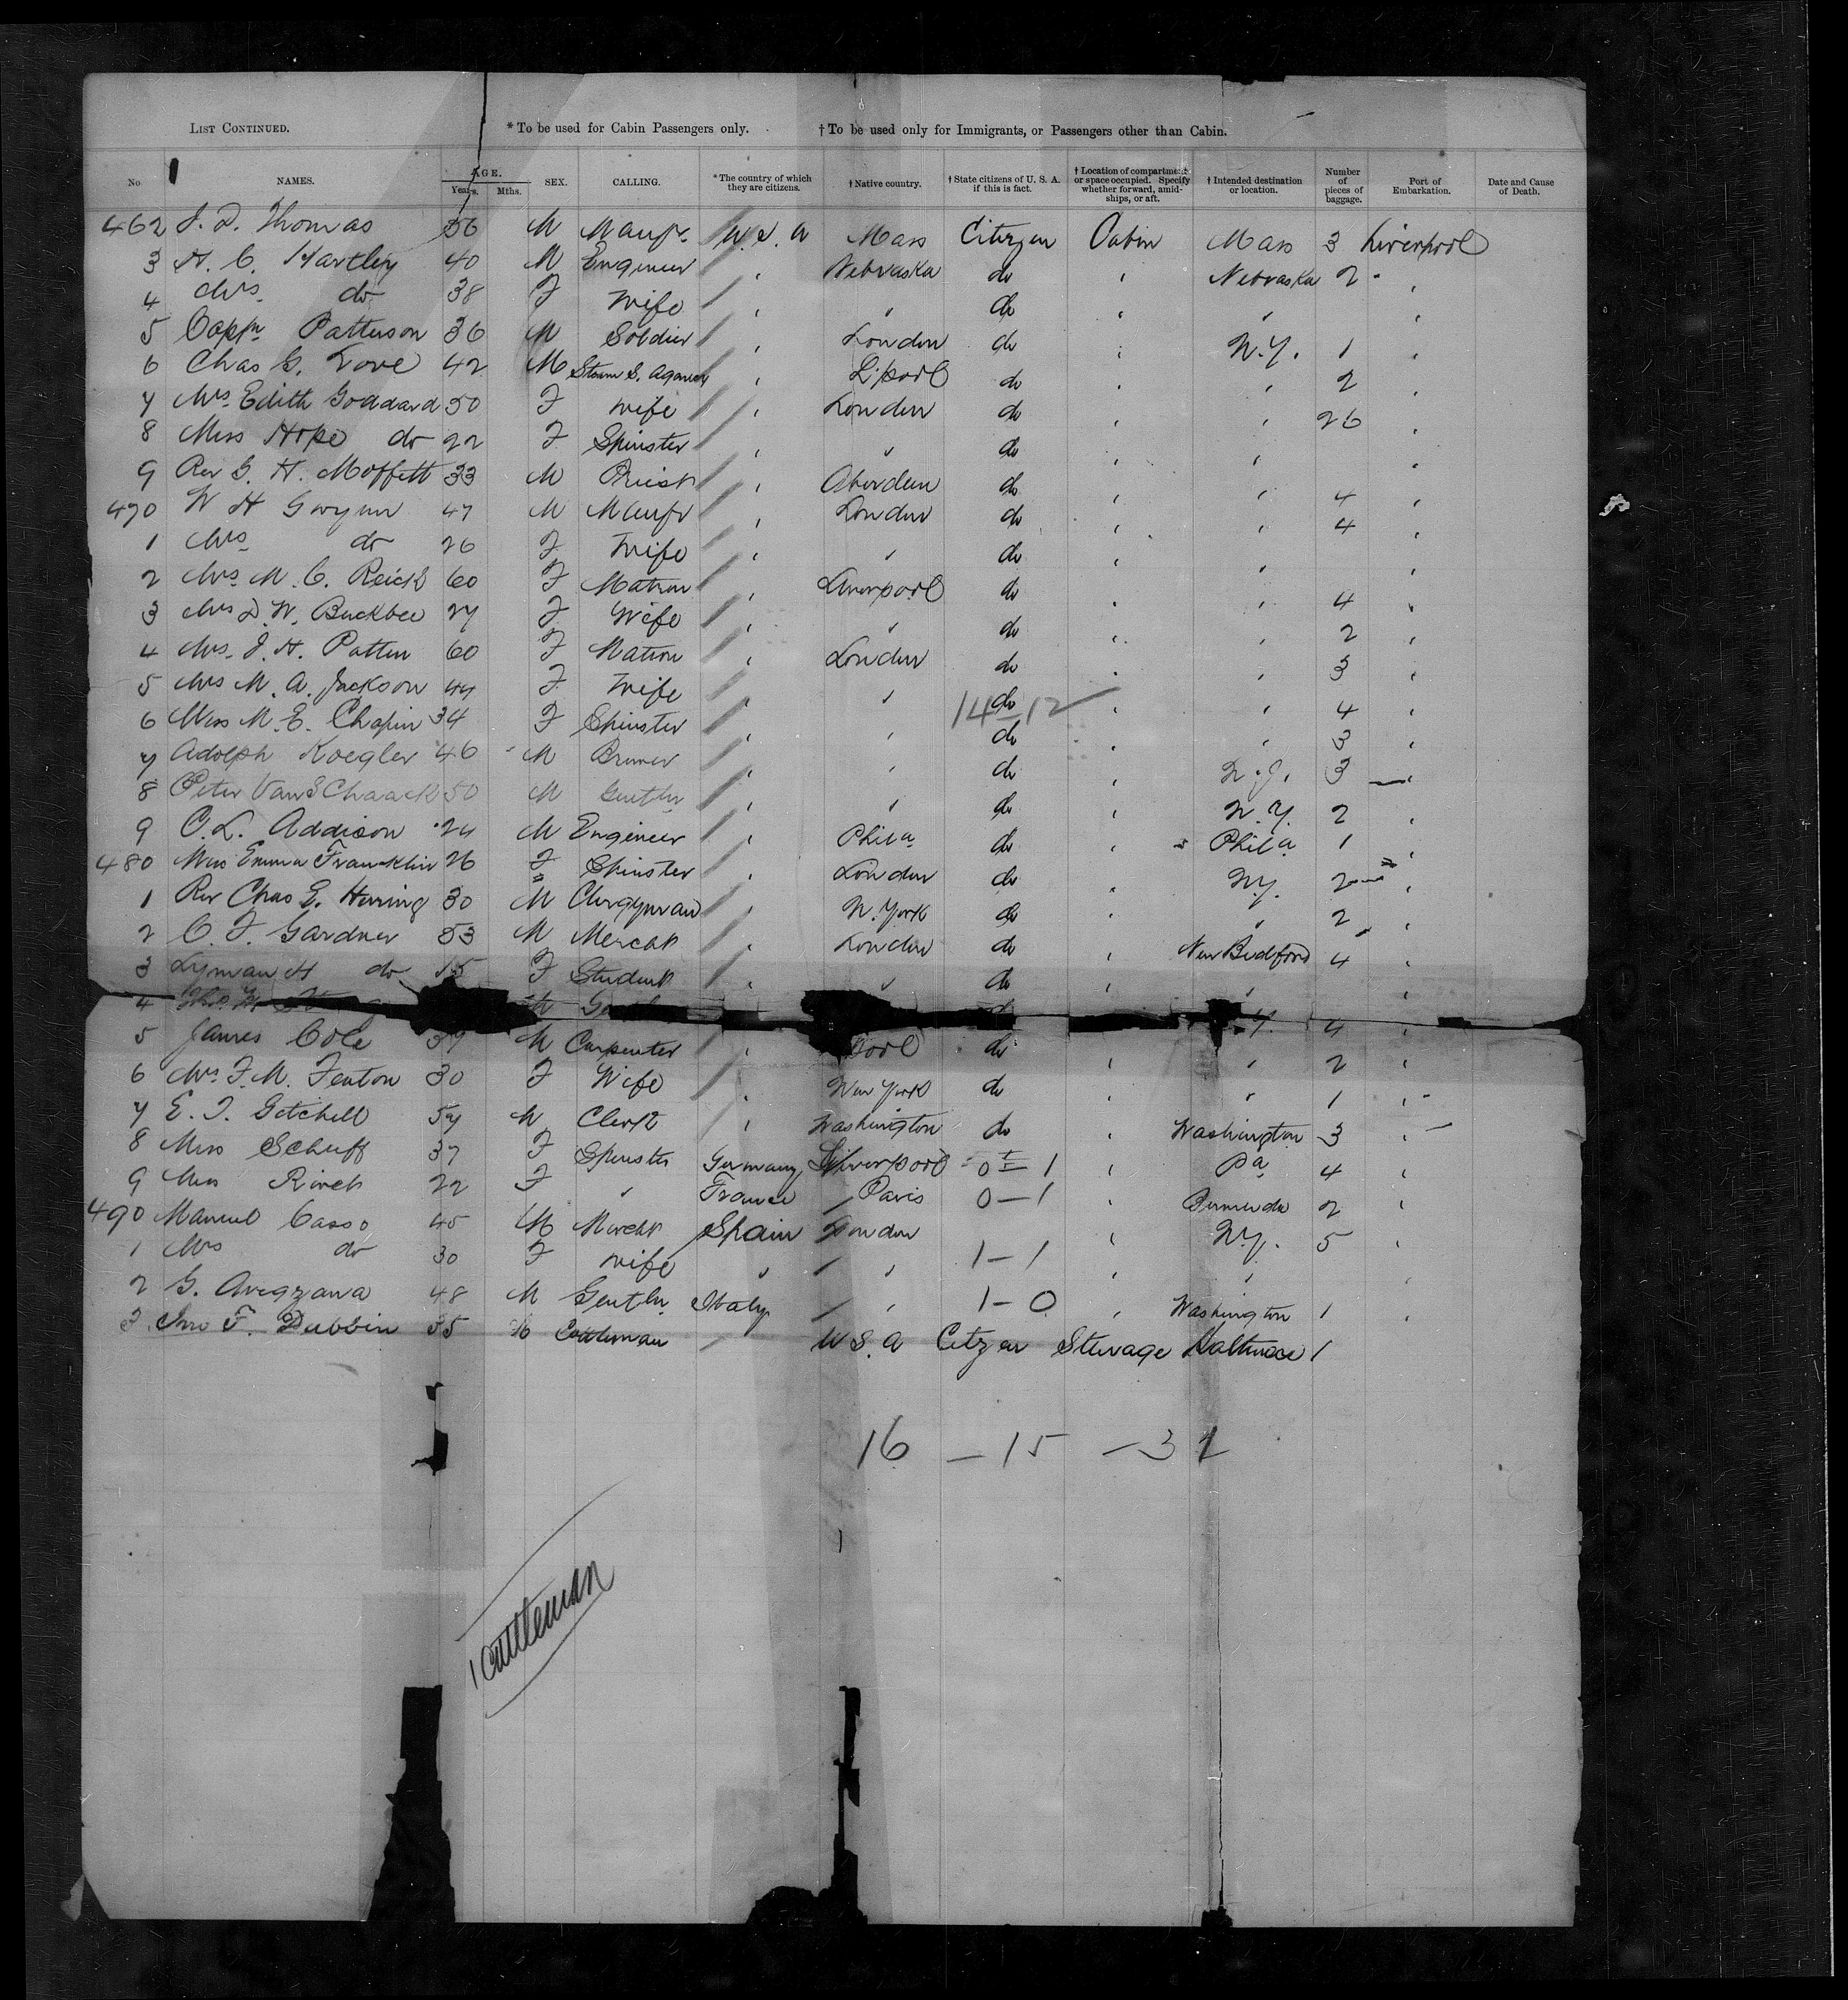 LIST CONTINUED. * To be used for Cabin Passengers only. † To be used only for Immigrants, or Passengers other than Cabin.
No NAMES. AGE. Years. Mths. SEX. CALLING. * The country of which they are citizens. † Native country. † State citizens of U. S. A. if this is fact. † Location of compartment or space occupied. Specify whether forward, amidships, or aft. † Intended destination or location. Number of pieces of baggage. Port of Embarkation. Date and Cause of Death.
462 J. D. Thomas 56 M Manfr. U.S.A Mass Citizen Cabin Mass 3 Liverpool
3 H. C. Hartley 40 M Engineer " Nebraska do " Nebraska 2 "
4 Mrs do 38 F Wife " " do " " "
5 Captn Patterson 36 M Soldier " London do " N.Y. 1 "
6 Chas G. Love 42 M Steam S. Agency " L'pool do " " 2 "
7 Mrs Edith Goddard 50 F Wife " London do " " 26 "
8 Miss Hope do 22 F Spinster " " do " " "
9 Rev G. H. Moffett 33 M Priest " Aberdeen do " " 4 "
470 W H Gwynn 47 M Manfr " London do " " 4 "
1 Mrs do 26 F Wife " " do " " "
2 Mrs M. C. Reick 60 F Matron " Liverpool do " " 4 "
3 Mrs D. W. Buckbee 27 F Wife " " do " " 2 "
4 Mrs J. H. Patten 60 F Matron " London do " " 3 "
5 Mrs M. A. Jackson 44 F Wife " " do " " 4 "
14-12
6 Miss M. E. Chapin 34 F Spinster " " do " " 3 "
7 Adolph Koegler 46 M Brewer " " do " N.J. 3 "
8 Peter Van SChaack 50 M Gentln " " do " N.Y. 2 "
9 C. L. Addison 24 M Engineer " Phila do " Phila 1 "
480 Miss Emma Francklin 26 F Spinster " London do " N.Y. 2 "
1 Rev Chas E. Hering 30 M Clergyman " N. York do " " 2 "
2 C. F. Gardner 53 M Mercht " London do " New Bedford 4 "
3 Lyman H do 15 F Student " " do " " "
4 M do 4 "
5 James Cole 39 M Carpenter " pool do " " 2 "
6 Mrs F. M. Fenton 30 F Wife " New York do " " 1 "
7 E. T. Getchell 57 M Clerk " Washington do " Washington 3 "
8 Miss Schuff 37 F Spinster Germany Liverpool 0-1 " Pa 4 "
9 Miss 22 F " France Paris 0-1 " Bermuda 2 "
490 Manuel Casso 45 M Mercht Spain London " N.Y. 5 "
1 Mrs do 30 F Wife " " 1-1 " " "
2 G. 48 M Gentln Italy " 1-0 " Washington 1 "
3 Jno F. Dubbin 35 M Cattleman U S. A Citzen Steerage Baltimore 1
16 - 15 - 31
1 Cattleman